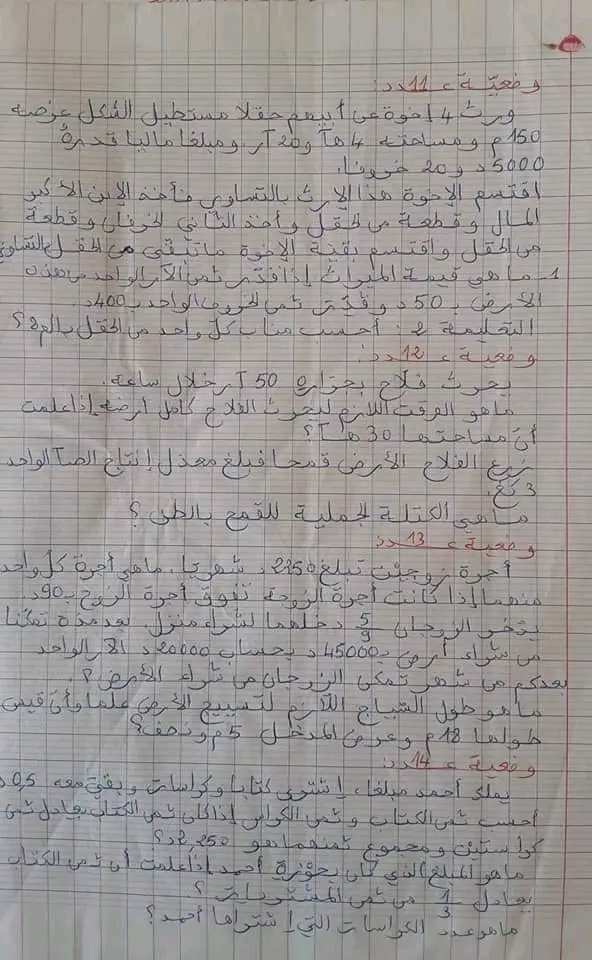 وضعيّة عـ11ـدد:
ورث 4 إخوة عن أبيهم حقلا مستطيل الشكل عرضه
150م ومساحته 4 هآ و20 آر ومبلغا ماليا قدرهُ
5000 د و20 خروفا.
اقتسم الإخوة هذا الإرث بالتساوي فأخذ الإبن الأكبر
المال وقطعة من الحقل وأخذ الثاني الخرفان وقطعة
من الحقل واقتسم بقيّة الإخوة ما تبقّى من الحقل بالتساوي
1- ماهي قيمة الميراث إذا قدّر ثمن الآر الواحد من هذه
الأرض بـ 50د وقدّر ثمن الخروف الواحد بـ400د.
التعليمة 2: أحسب مناب كلّ واحد من الحقل بالم2؟
وضعية عـ12ـدد:
يحرث فلاح بجراره 50 آر خلال ساعة.
ماهو الوقت اللازم ليحرث الفلاح كامل أرضه إذا علمت
أنّ مساحتها 30 هـآ؟
زرع الفلاح الأرض قمحا فبلغ معدل إنتاج الصآ الواحد
3 كغ.
ماهي الكتلة الجملية للقمح بالطن؟
وضعية عـ13ـدد
أجرة زوجين تبلغ 2250د شهريا. ماهي أجرة كلّ واحد
منهما إذا كانت أجرة الزوجة تفوق أجرة الزوج بـ90د.
يدّخر الزوجان 5/9 دخلهما لشراء منزل. بعد مدّة تمكّنا
من شراء أرض بـ45000د بحساب 20000د الآر الواحد
بعدكم من شهر تمكن الزوجان من شراء الأرض؟
ماهو طول السّياج اللاّزم لتسييج الأرض علما وأنّ قيس
طولها 18م وعرض المدخل 5م ونصف؟
وضعية عـ14ـدد:
يملك أحمد مبلغا، إشترى كتابا وكراسات وبقيَ معه 0,5 د
أحسب ثمن الكتاب وثمن الكراس إذا كان ثمن الكتاب يعادل ثمن
كراستين ومجموع ثمنهما هو 2,250د؟
ماهو المبلغ الذي كان بحوْزة أحمد إذا علمت أن ثمن الكتاب
يعادل 1/3 من ثمن المشتريات؟
ماهو عدد الكراسات التي إشتراها أحمد؟